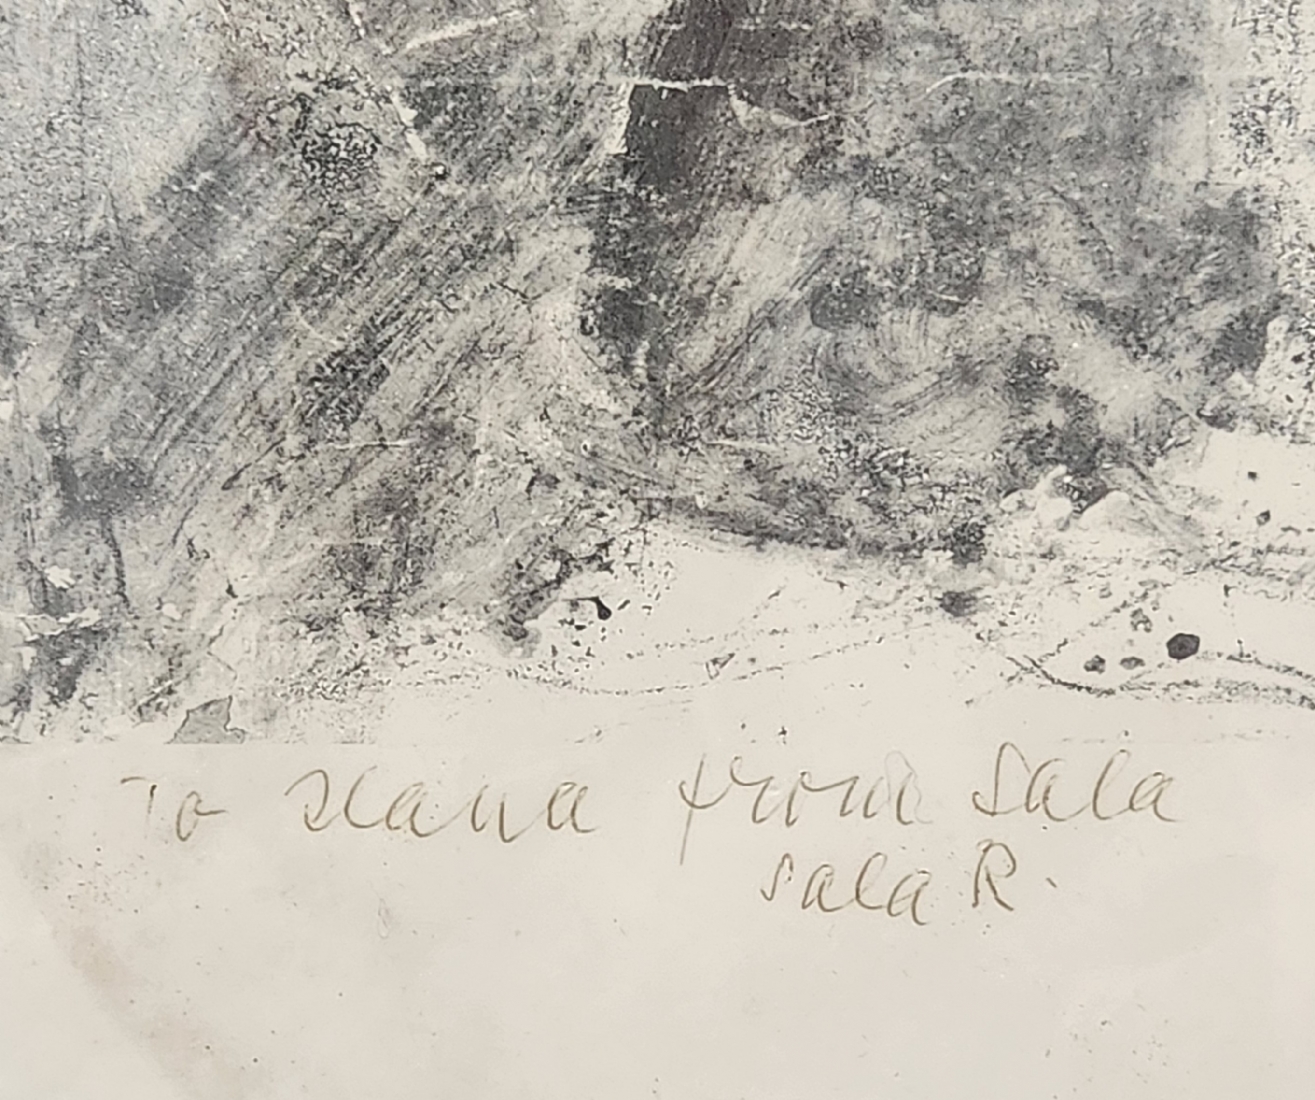 To Ilana from Sala
Sala R.